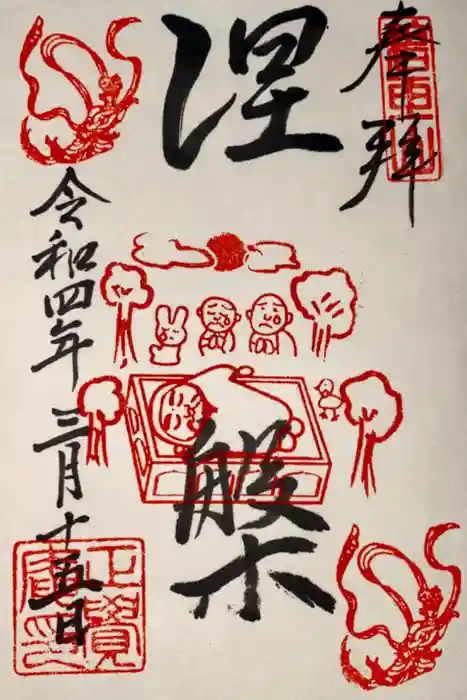 奉拝
涅槃
令和四年三月十五日